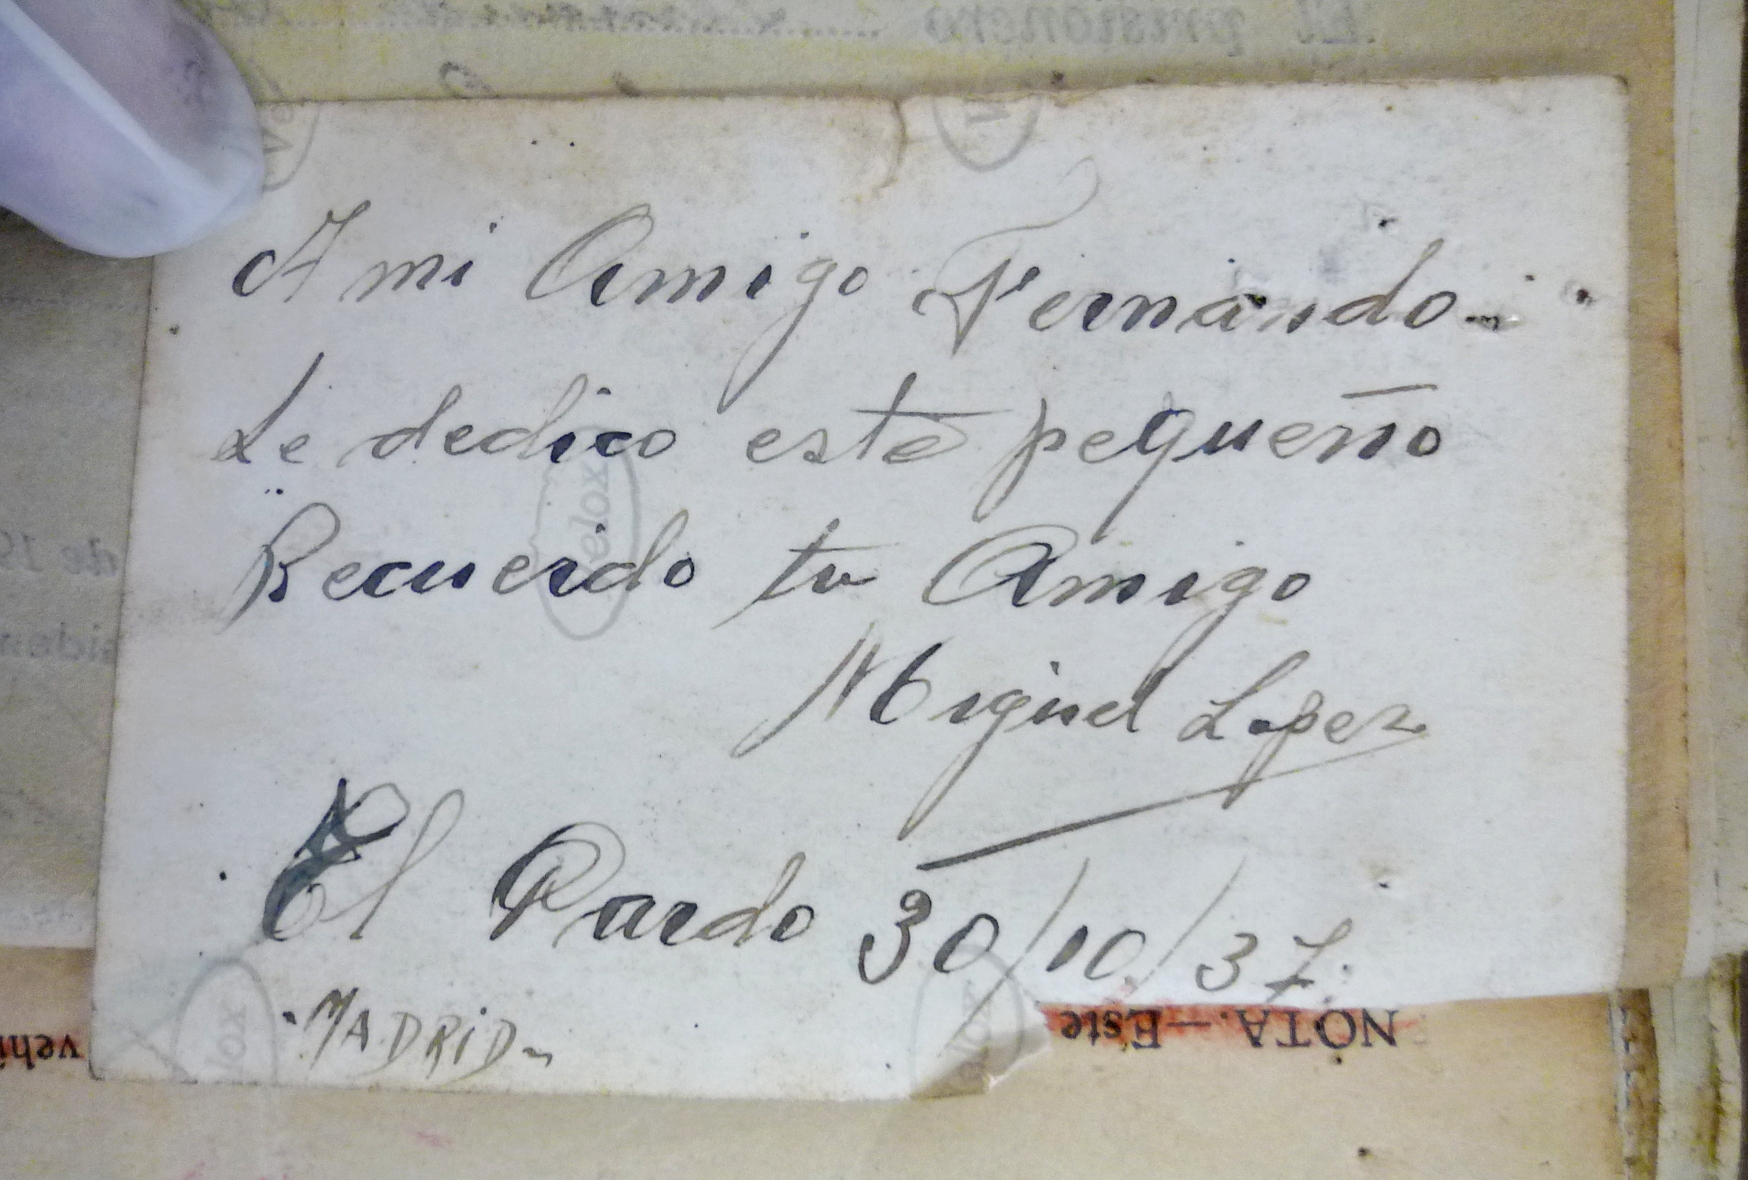 El prisionero
A mi Amigo Fernando
Le dedico este pequeño
Recuerdo tu Amigo
Miguel Lopez
El Pardo 30/10/37.
MADRID
Velox
de 19
NOTA.—Este
vehi